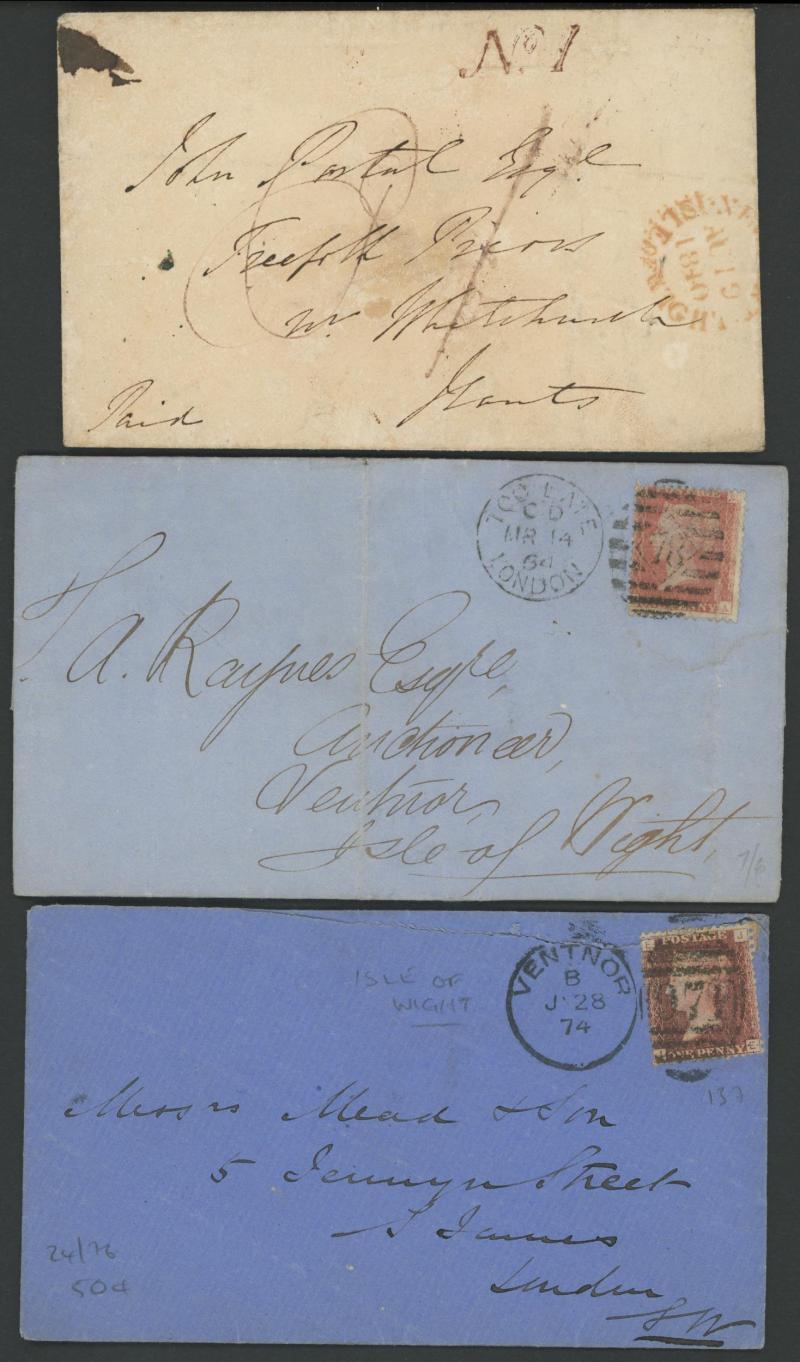 No. 1
John Portal Esqre
Freefolk Priors
nr Whitchurch
Hants
Paid
ISLE OF
AU 19
1840
TOO LATE
CD
MR 14
64
LONDON
78
A. Raynes Esqre,
Auctioneer,
Ventnor,
Isle of Wight,
7/6
VENTNOR
B
J 28
74
E POSTAGE J
J ONE PENNY E
ISLE OF
WIGHT
137
Messrs Mead & Son
5 Jermyn Street
St James
London
SW
24/76
504